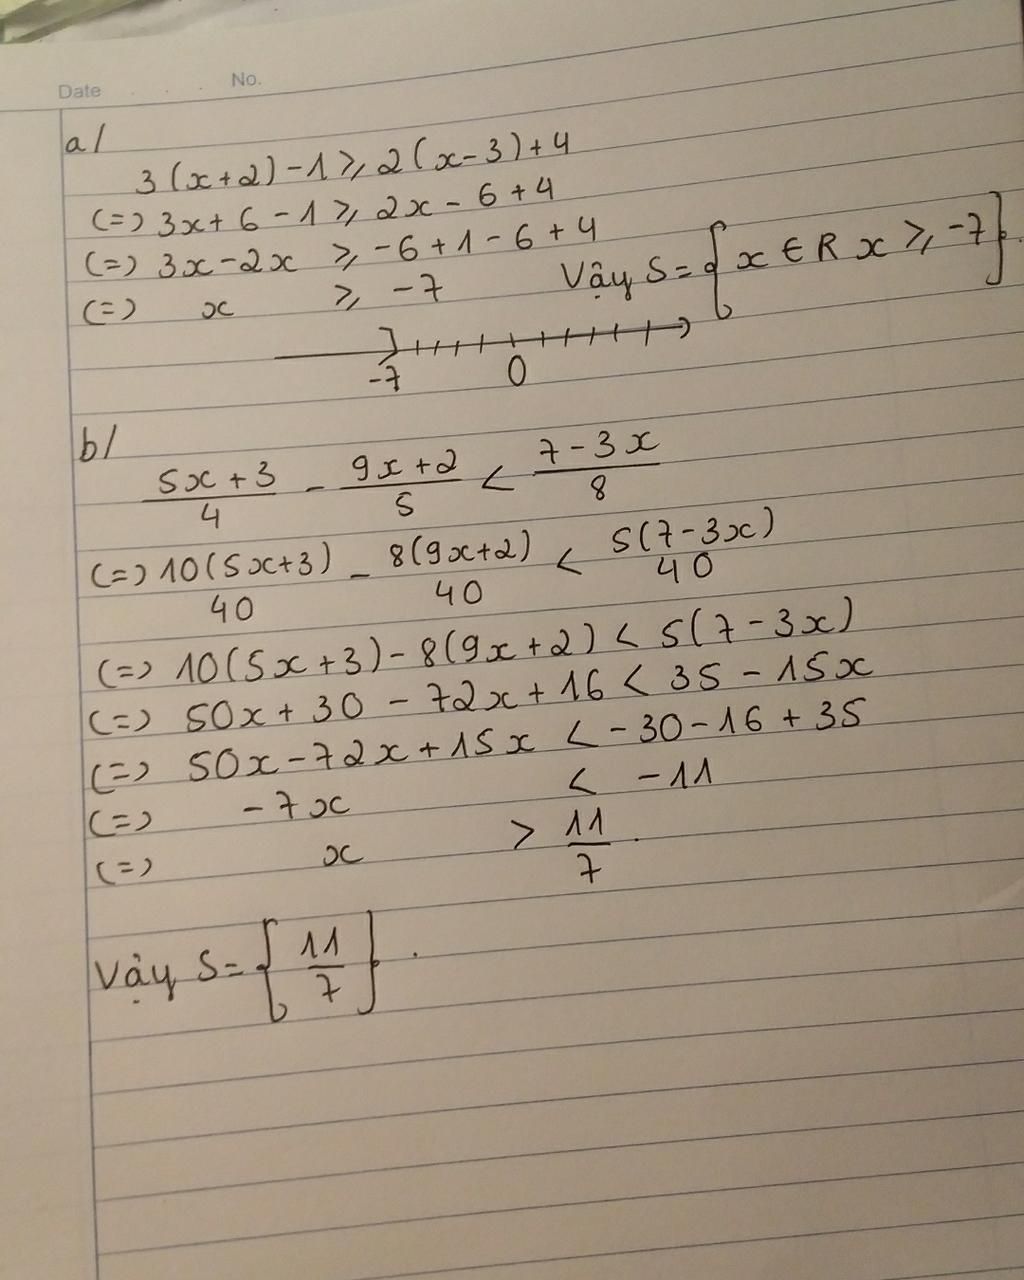 Date No.
a/
3(x+2)-1 ⩾ 2(x-3)+4
(=) 3x+6-1 ⩾ 2x-6+4
(=) 3x-2x ⩾ -6+1-6+4
(=) x ⩾ -7 Vậy S={x ∈ R x ⩾ -7}.
-7 0
b/
(5x+3)/4 - (9x+2)/5 < (7-3x)/8
(=) 10(5x+3)/40 - 8(9x+2)/40 < 5(7-3x)/40
(=) 10(5x+3)-8(9x+2) < 5(7-3x)
(=) 50x+30-72x+16 < 35-15x
(=) 50x-72x+15x < -30-16+35
(=) -7x < -11
(=) x > 11/7.
Vậy S={11/7}.